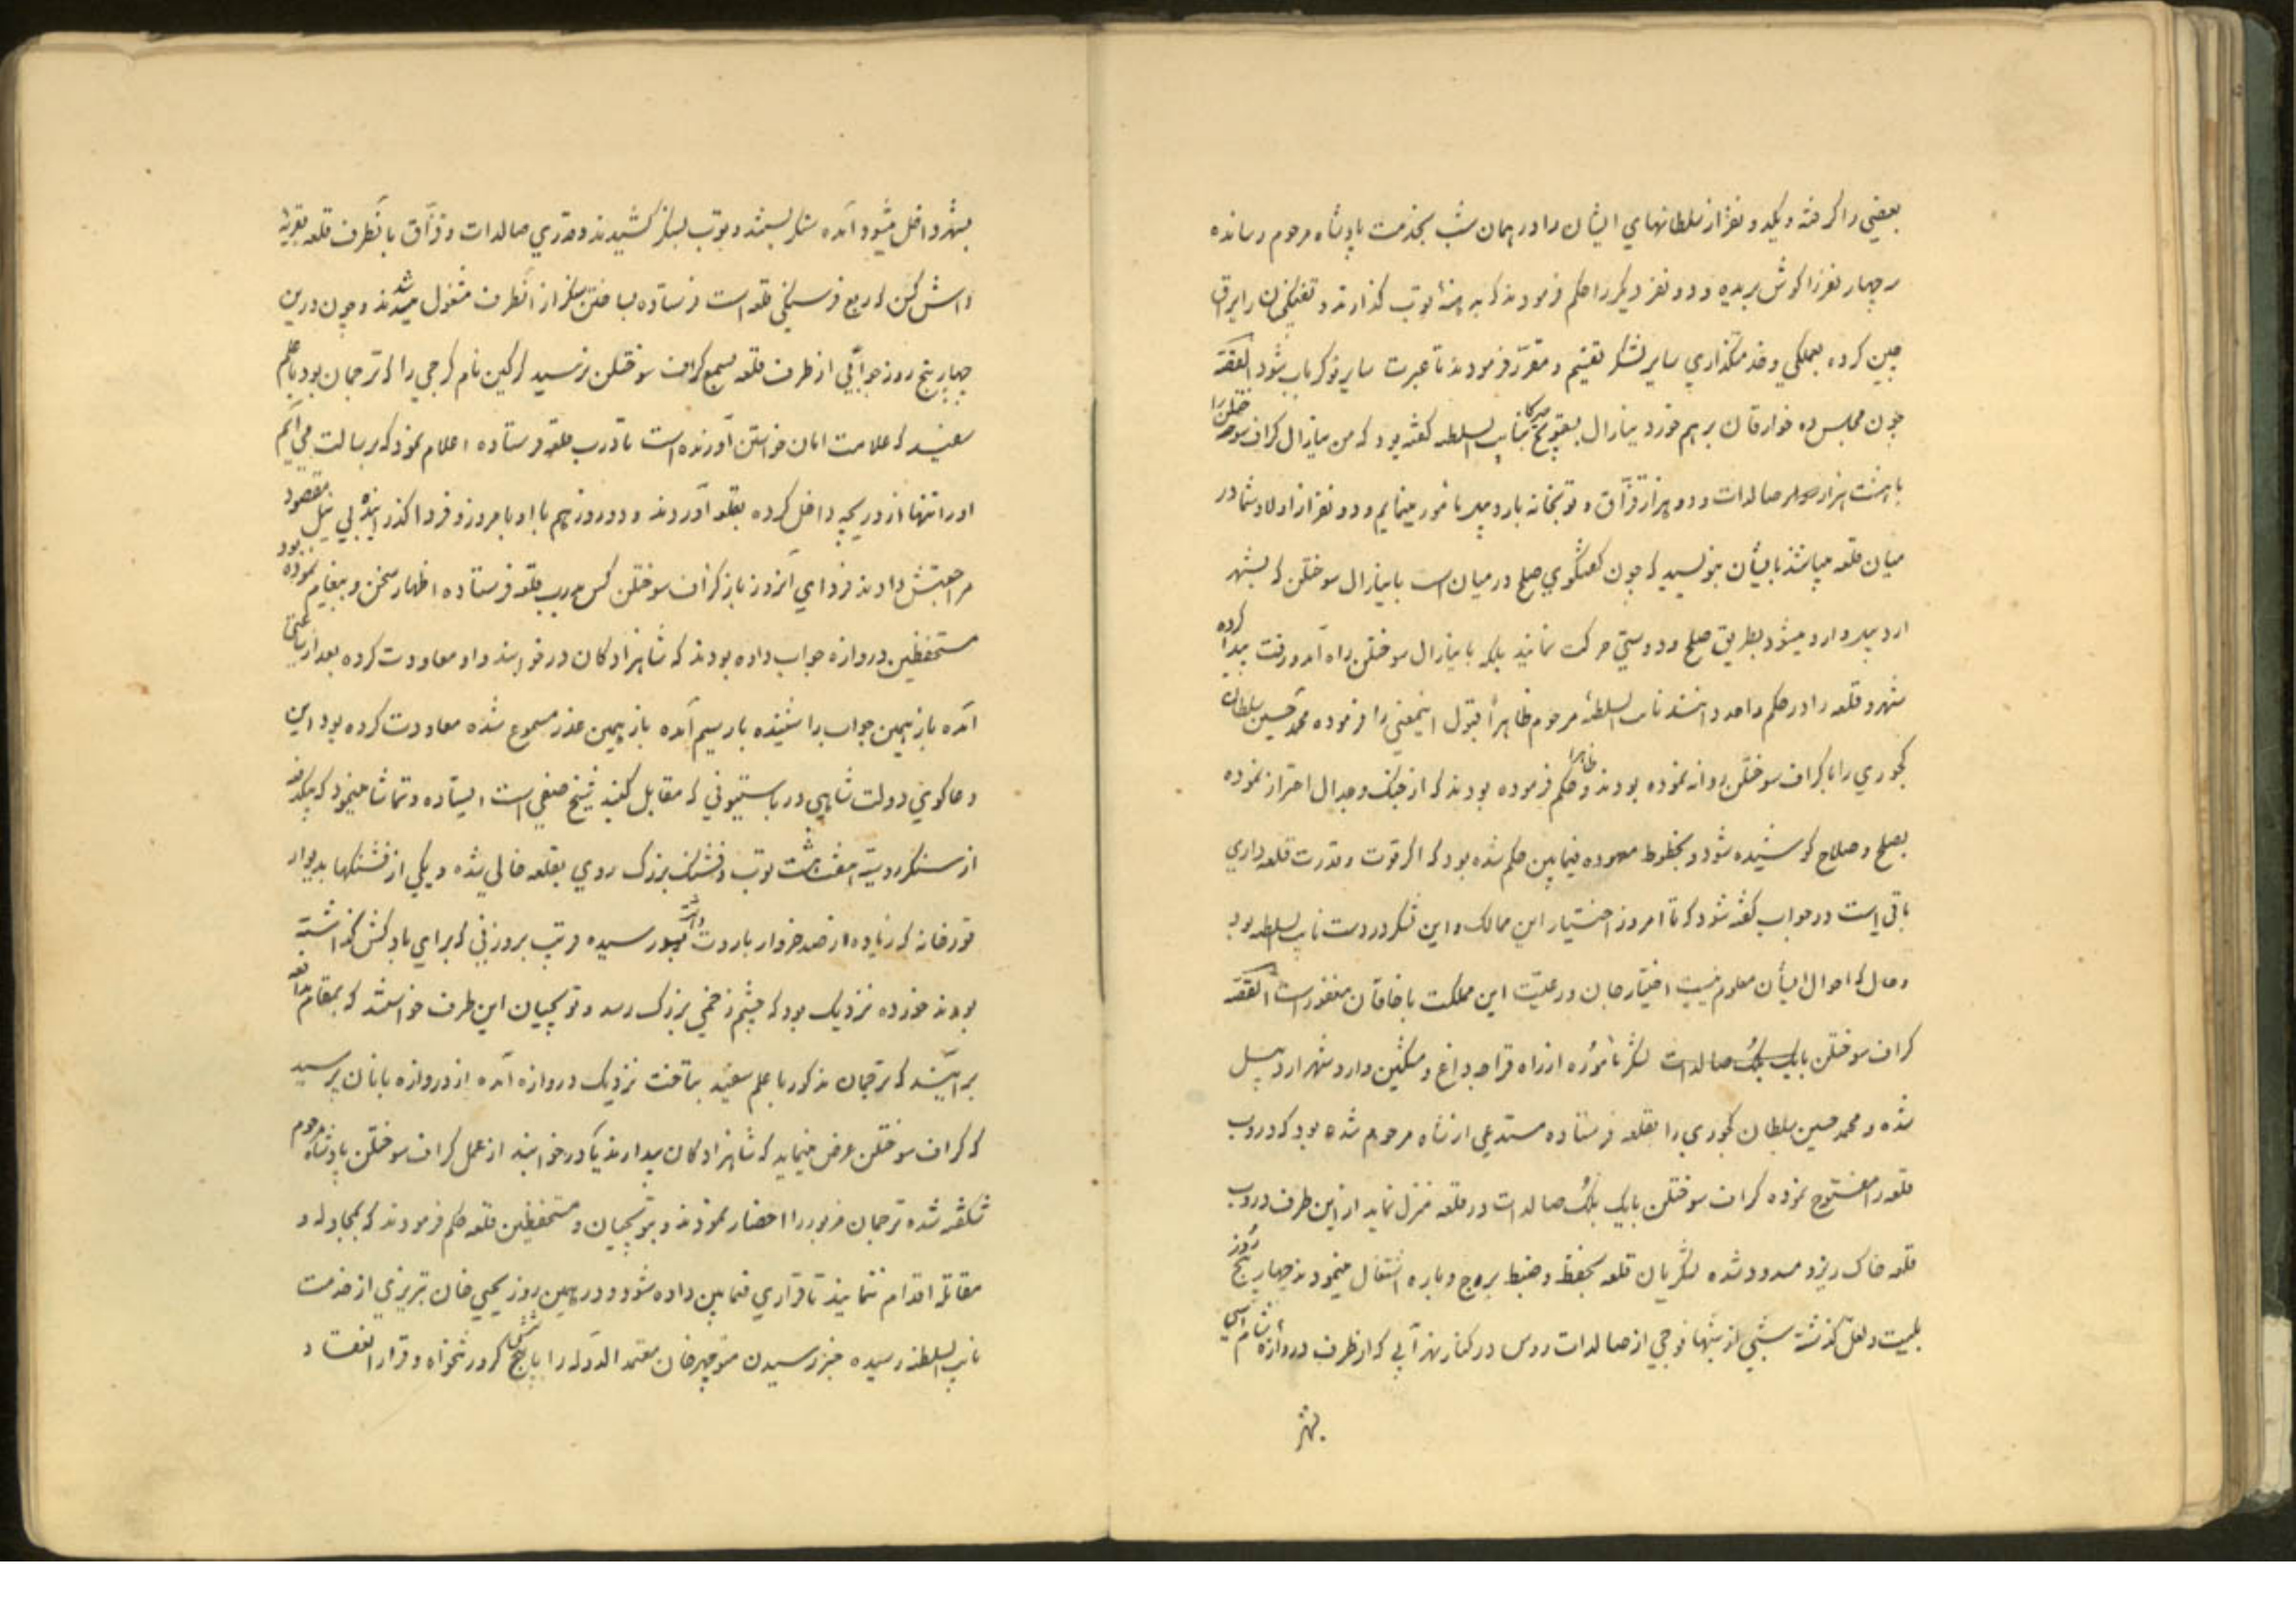 بعضی را گرفته و یکدو نفر از سلطانهای ایشان را در همان شب بخدمت پادشاه مرحوم رسانده
سه چهار نفر را گوش بریده و دو نفر دیگر را حکم فرمودند که به توپ گذارند و تفنگچیان را یراق
چین کرده بعملگی و خدمتگذاری سایر لشکر تقسیم و مقرر فرمودند تا عبرت سایر نوکر باب شود القصه
چون مجلس ده خوارقان برهم خورد نیارال بسقویچ بنایب السلطنه گفته بود که من نیارال کراف سوختلن را
با هشت هزار صالدات و دو هزار قزاق و توپخانه باردبیل مأمور مینمایم و دو نفر از اولاد شما در
میان قلعه میباشند بایشان بنویسید که چون گفتگوی صلح در میان است با نیارال سوختلن که بشهر
اردبیل وارد میشود بطریق صلح و دوستی حرکت نمایند بلکه با نیارال سوختلن راه آمد و رفت پیدا کرده
شهر و قلعه را در حکم واحد دانند نایب السلطنه مرحوم ظاهراً قبول اینمعنی را فرموده محمد حسین سلطان
کجوری را با کراف سوختلن روانه نموده بودند و ظاهرا حکم فرموده بودند که از جنگ و جدال احتراز نموده
بصلح و صلاح کوشیده شود و بخطوط معهوده فیمابین حکم شده بود که اگر قوت و قدرت قلعه داری
باقی است در جواب گفته شود که تا امروز اختیار این ممالک و این لشکر در دست نایب السلطنه بود
و حال که احوال ایشان معلوم نیست اختیار جان و رعیت این مملکت با خاقان مغفور است القصه
کراف سوختلن بایک بلک صالدات لشکر مأموره از راه قراجه داغ و مشکین وارد شهر اردبیل
شده و محمد حسین سلطان کجوری را بقلعه فرستاده مستدعی از شاه مرحوم شده بود که دروب
قلعه را مفتوح نموده کراف سوختلن بایک بلک صالدات در قلعه منزل نماید از این طرف دروب
قلعه خاک ریز و مسدود شده لشکریان قلعه بحفظ و ضبط بروج و باره اشتغال مینمودند چهار پنج روز
بلیت و لعل گذشته شبی از شبها فوجی از صالدات روس در کنار نهر آبی که از طرف دروازه شام اسبی
بشهر
بشهر داخل میشود آمده سنگر بستند و توپ بسنگر کشیدند و قدری صالدات و قزاق بآنطرف قلعه بقریه
که ربع فرسنگی قلعه است فرستاده بساختن سنگر از آنطرف مشغول میشدند و چون درین
چهار پنج روز جوابی از طرف قلعه بسمع کراف سوختلن نرسید گرگین نام گرجی را که ترجمان بود با علم
سفید که علامت امان خواستن آورنده است تا درب قلعه فرستاده اعلام نمود که برسالت می آیم
او را تنها از دریچه داخل کرده بقلعه آوردند و دو روز هم با او بامروز و فردا گذرانیده بی نیل مقصود
مراجعتش دادند فردای آنروز باز کراف سوختلن کس بدرب قلعه فرستاده اظهار سخن و پیغام نموده بود
مستحفظین دروازه جواب داده بودند که شاهزادگان در خوابند و او معاودت کرده بعد از ساعتی
آمده باز همین جواب را شنیده بار سیم آمده باز همین عذر مسموع شده معاودت کرده بود این
دعاگوی دولت شاهی در باستیونی که مقابل گنبد شیخ صفی است ایستاده و تماشا مینمود که یکدفعه
از سنگر رویت هفت هشت توپ و فشنگ بزرگ روی بقلعه خالی شده و یکی از فشنگها بدیوار
قورخانه که زیاده از صد خروار باروت داشت رسیده قریب بروزنی که برای بادکش گذاشته
بودند خورده نزدیک بود که چشم زخمی بزرگ رسد و توپچیان این طرف خواستند که بمقام مدافعه
برآیند که ترجمان مذکور با علم سفید بتاخت نزدیک دروازه آمده از دروازه بانان پرسید
که کراف سوختلن عرض مینماید که شاهزادگان بیدارند یا در خوابند از عمل کراف سوختلن پادشاه مرحوم
شکفته شده ترجمان مزبور را احضار نمودند و بتوپچیان و مستحفظین قلعه حکم فرمودند که بمجادله و
مقاتله اقدام ننمایند تا قراری فیمابین داده شود و در همین روز یحیی خان تبریزی از خدمت
نایب السلطنه رسیده خبر رسیدن منوچهر خان معتمد الدوله را با پنج کرور تنخواه و قرار انعقاد